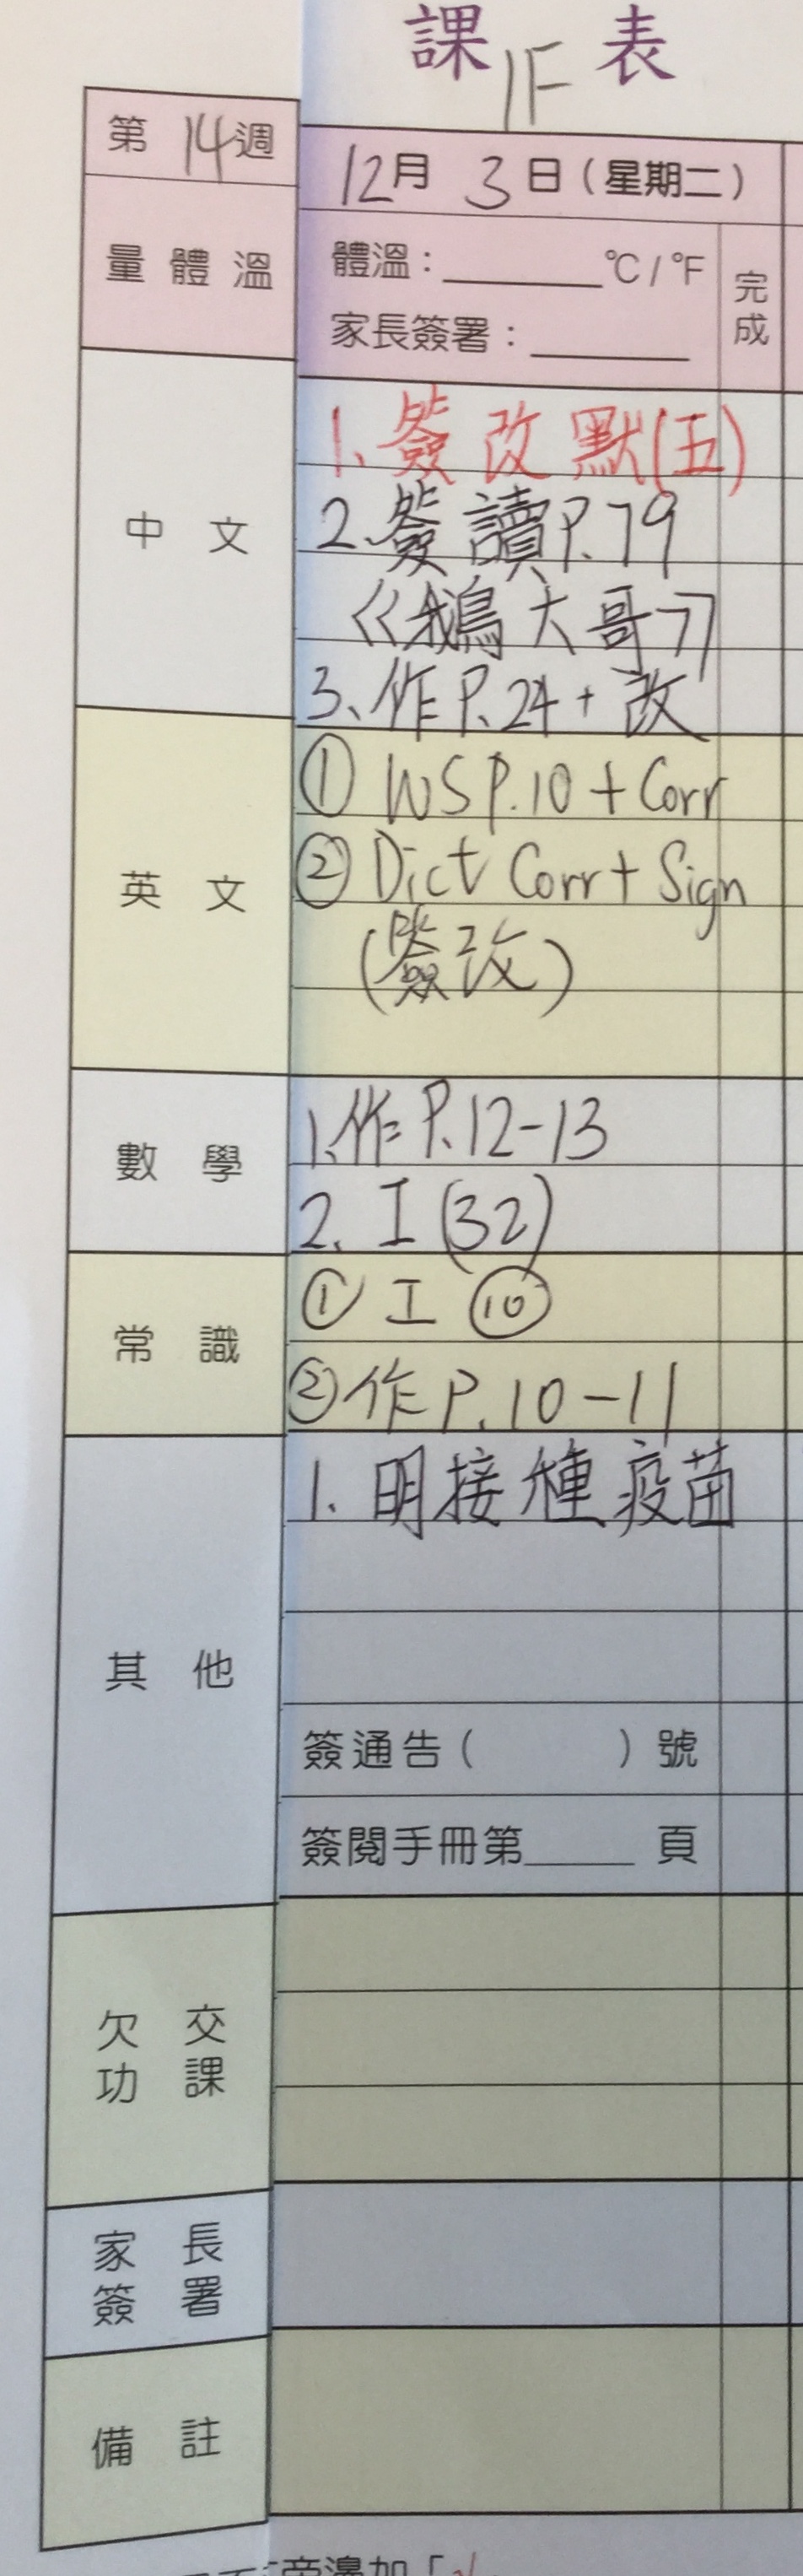 課 1F 表
第 14 週
12月 3日（星期二）
量體溫
體溫：______°C / °F
家長簽署：______
完成
中文
1、簽改默(五)
2、簽讀P.79
《鵝大哥》
3、作P.24 + 改
英文
① WS P.10 + Corr
② Dict Corr + Sign
(簽改)
數學
1、作P.12-13
2、工(32)
常識
① 工⑩
② 作P.10-11
其他
1、明接種疫苗
簽通告（ ）號
簽閱手冊第____頁
欠交
功課
家長
簽署
備註
旁邊加「